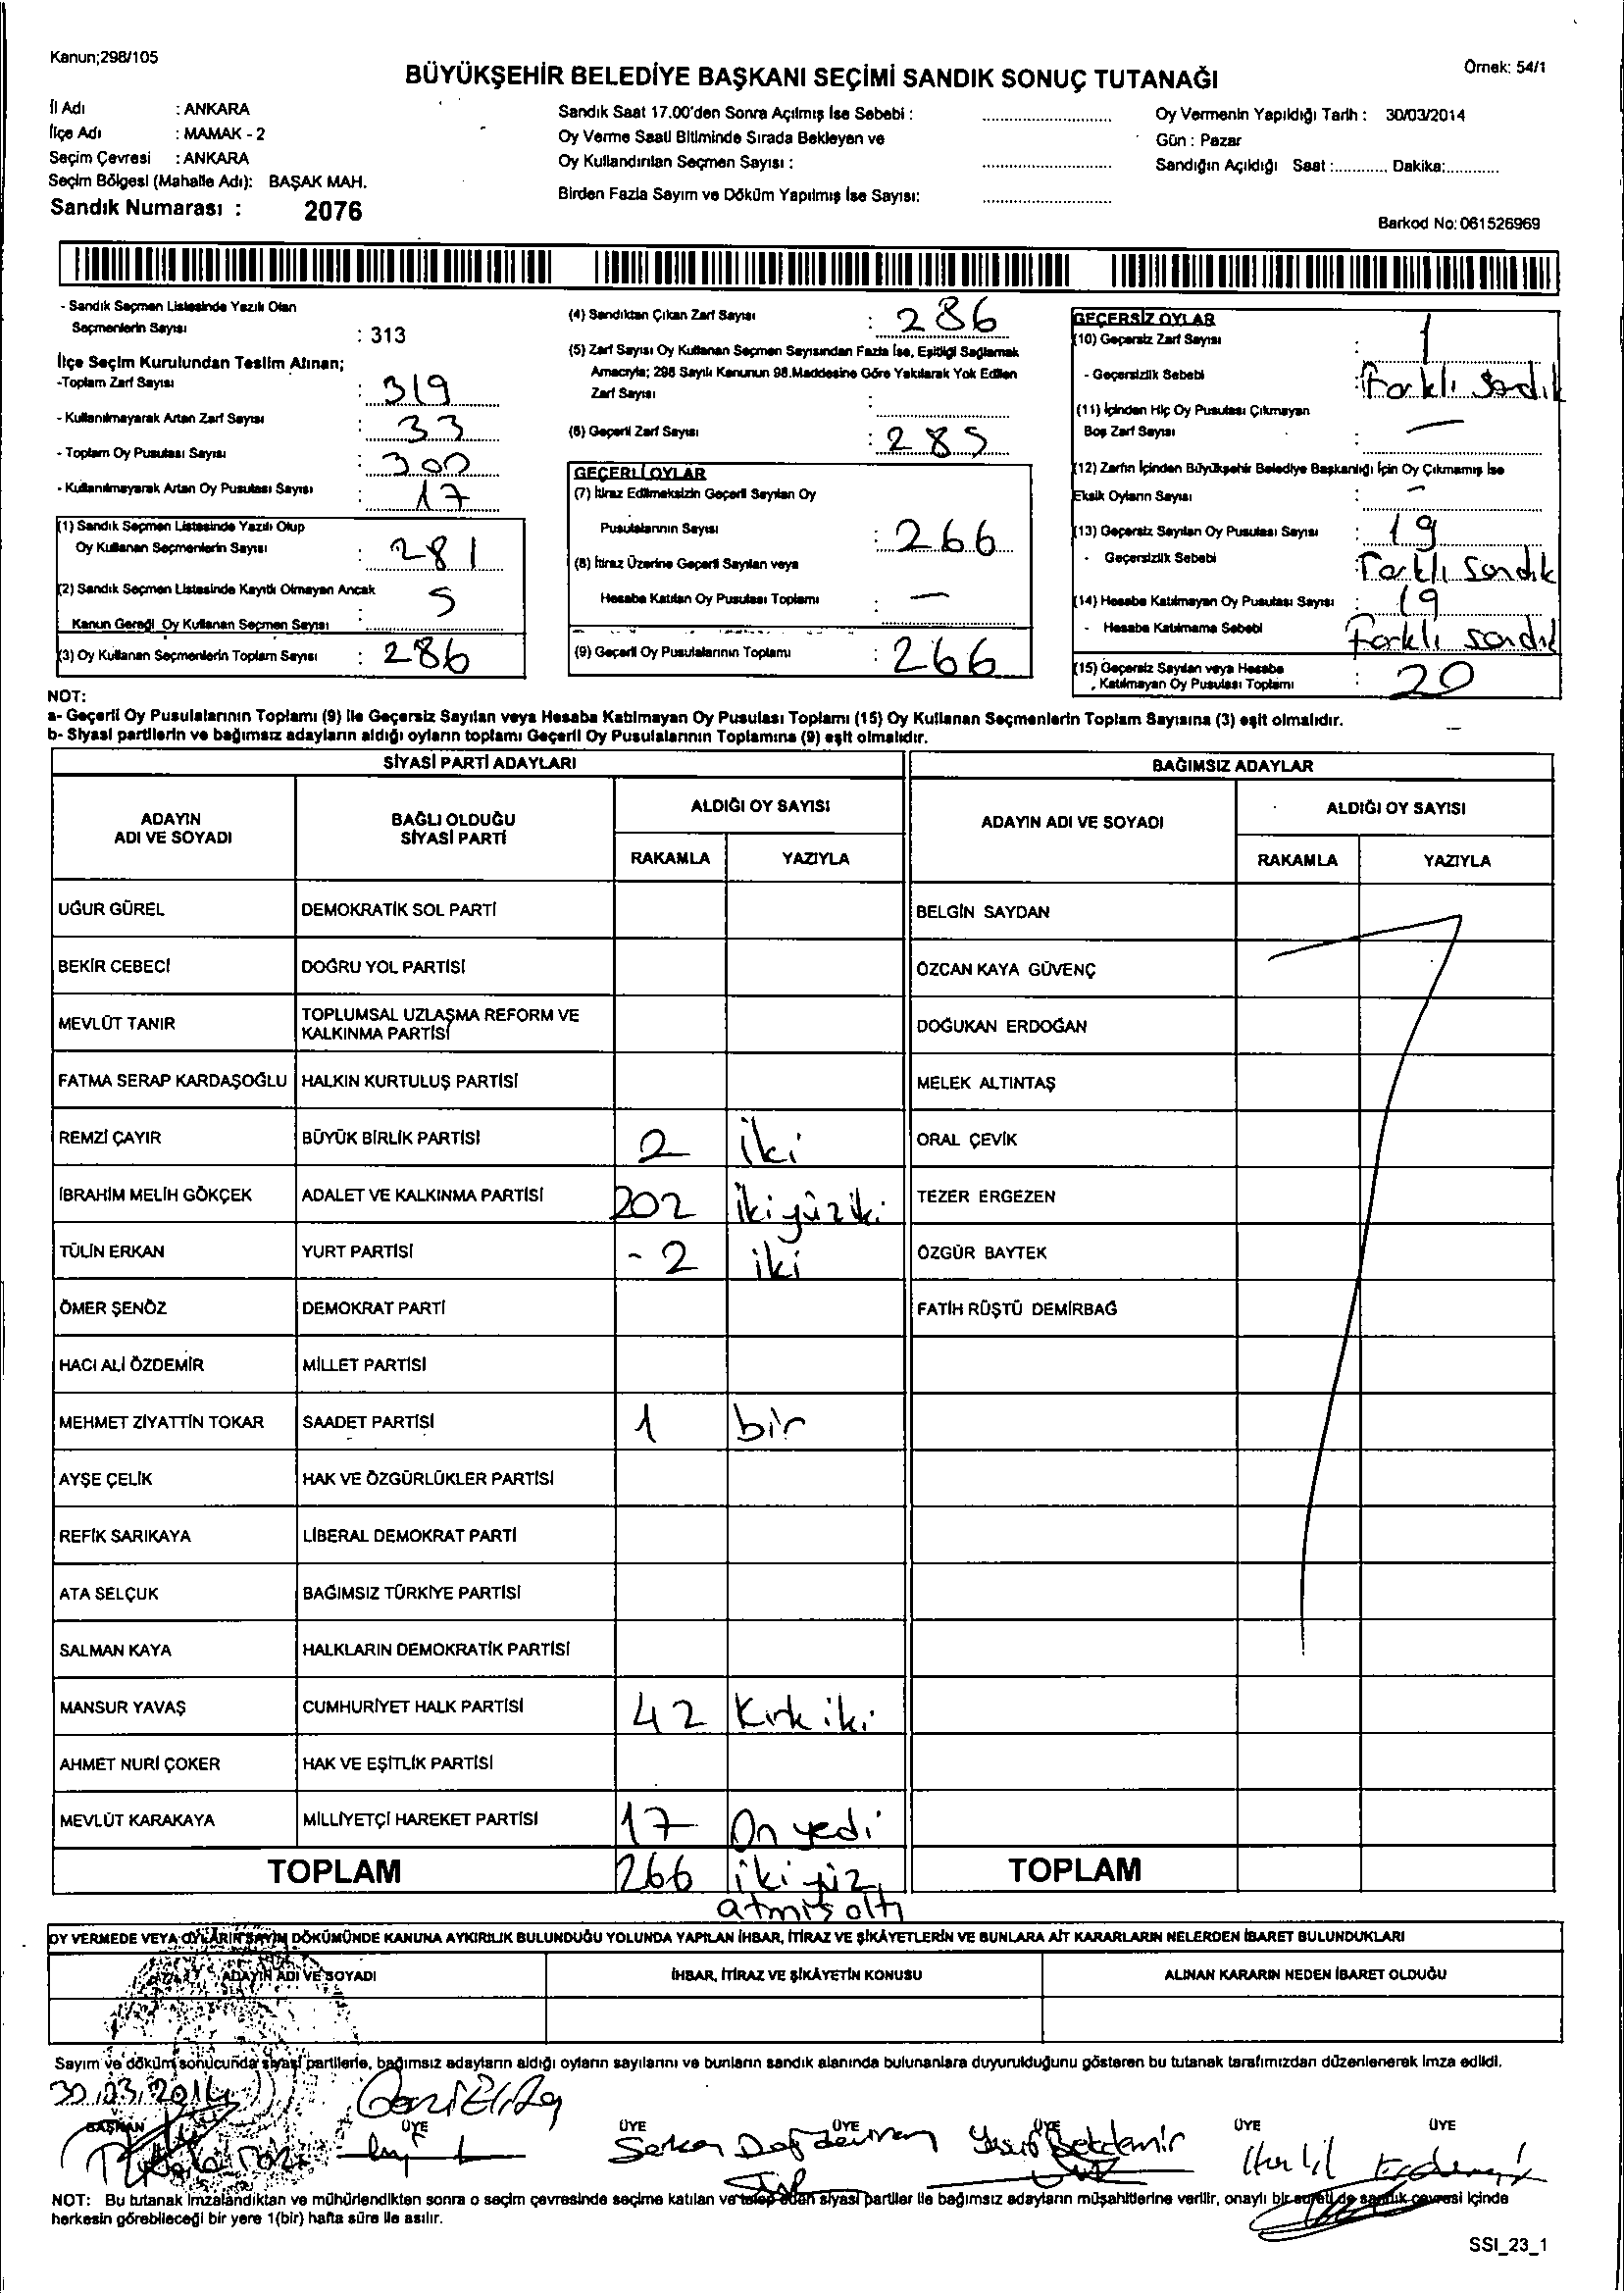 Kanun;298/105
BÜYÜKŞEHİR BELEDİYE BAŞKANI SEÇİMİ SANDIK SONUÇ TUTANAĞI
Örnek: 54/1
İl Adı : ANKARA
İlçe Adı : MAMAK - 2
Seçim Çevresi : ANKARA
Seçim Bölgesi (Mahalle Adı): BAŞAK MAH.
Sandık Numarası : 2076
Sandık Saat 17.00'den Sonra Açılmış İse Sebebi :
Oy Verme Saati Bitiminde Sırada Bekleyen ve
Oy Kullandırılan Seçmen Sayısı :
Birden Fazla Sayım ve Döküm Yapılmış İse Sayısı:
Oy Vermenin Yapıldığı Tarih : 30/03/2014
Gün : Pazar
Sandığın Açıldığı Saat :............ Dakika:............
Barkod No: 061526969
- Sandık Seçmen Listesinde Yazılı Olan
Seçmenlerin Sayısı : 313
İlçe Seçim Kurulundan Teslim Alınan;
-Toplam Zarf Sayısı : 319
- Kullanılmayarak Artan Zarf Sayısı : 33
- Toplam Oy Pusulası Sayısı : 300
- Kullanılmayarak Artan Oy Pusulası Sayısı : 17
(1) Sandık Seçmen Listesinde Yazılı Olup
Oy Kullanan Seçmenlerin Sayısı : 281
(2) Sandık Seçmen Listesinde Kayıtlı Olmayan Ancak
Kanun Gereği Oy Kullanan Seçmen Sayısı : 5
(3) Oy Kullanan Seçmenlerin Toplam Sayısı : 286
(4) Sandıktan Çıkan Zarf Sayısı : 286
(5) Zarf Sayısı Oy Kullanan Seçmen Sayısından Fazla İse, Eşitliği Sağlamak
Amacıyla; 298 Sayılı Kanunun 98.Maddesine Göre Yakılarak Yok Edilen
Zarf Sayısı :
(6) Geçerli Zarf Sayısı : 285
GEÇERLİ OYLAR
(7) İtiraz Edilmeksizin Geçerli Sayılan Oy
Pusulalarının Sayısı : 266
(8) İtiraz Üzerine Geçerli Sayılan veya
Hesaba Katılan Oy Pusulası Toplamı : —
(9) Geçerli Oy Pusulalarının Toplamı : 266
GEÇERSİZ OYLAR
(10) Geçersiz Zarf Sayısı : 1
- Geçersizlik Sebebi : Farklı Sandık
(11) İçinden Hiç Oy Pusulası Çıkmayan
Boş Zarf Sayısı : —
(12) Zarfın İçinden Büyükşehir Belediye Başkanlığı İçin Oy Çıkmamış İse
Eksik Oyların Sayısı : –
(13) Geçersiz Sayılan Oy Pusulası Sayısı : 19
- Geçersizlik Sebebi : Farklı Sandık
(14) Hesaba Katılmayan Oy Pusulası Sayısı : 19
- Hesaba Katılmama Sebebi Farklı sandık
(15) Geçersiz Sayılan veya Hesaba
Katılmayan Oy Pusulası Toplamı : 20
NOT:
a- Geçerli Oy Pusulalarının Toplamı (9) ile Geçersiz Sayılan veya Hesaba Katılmayan Oy Pusulası Toplamı (15) Oy Kullanan Seçmenlerin Toplam Sayısına (3) eşit olmalıdır.
b- Siyasi partilerin ve bağımsız adayların aldığı oyların toplamı Geçerli Oy Pusulalarının Toplamına (9) eşit olmalıdır.
SİYASİ PARTİ ADAYLARI
ADAYIN ADI VE SOYADI
BAĞLI OLDUĞU SİYASİ PARTİ
ALDIĞI OY SAYISI
RAKAMLA YAZIYLA
UĞUR GÜREL DEMOKRATİK SOL PARTİ
BEKİR CEBECİ DOĞRU YOL PARTİSİ
MEVLÜT TANIR TOPLUMSAL UZLAŞMA REFORM VE KALKINMA PARTİSİ
FATMA SERAP KARDAŞOĞLU HALKIN KURTULUŞ PARTİSİ
REMZİ ÇAYIR BÜYÜK BİRLİK PARTİSİ 2 iki
İBRAHİM MELİH GÖKÇEK ADALET VE KALKINMA PARTİSİ 202 ikiyüziki
TÜLİN ERKAN YURT PARTİSİ - 2 iki
ÖMER ŞENÖZ DEMOKRAT PARTİ
HACI ALİ ÖZDEMİR MİLLET PARTİSİ
MEHMET ZİYATTİN TOKAR SAADET PARTİSİ 1 bir
AYŞE ÇELİK HAK VE ÖZGÜRLÜKLER PARTİSİ
REFİK SARIKAYA LİBERAL DEMOKRAT PARTİ
ATA SELÇUK BAĞIMSIZ TÜRKİYE PARTİSİ
SALMAN KAYA HALKLARIN DEMOKRATİK PARTİSİ
MANSUR YAVAŞ CUMHURİYET HALK PARTİSİ 42 Kırk iki
AHMET NURİ ÇOKER HAK VE EŞİTLİK PARTİSİ
MEVLÜT KARAKAYA MİLLİYETÇİ HAREKET PARTİSİ 17 On yedi
TOPLAM 266 iki yüz
atmış altı
BAĞIMSIZ ADAYLAR
ADAYIN ADI VE SOYADI
ALDIĞI OY SAYISI
RAKAMLA YAZIYLA
BELGİN SAYDAN
ÖZCAN KAYA GÜVENÇ
DOĞUKAN ERDOĞAN
MELEK ALTINTAŞ
ORAL ÇEVİK
TEZER ERGEZEN
ÖZGÜR BAYTEK
FATİH RÜŞTÜ DEMİRBAĞ
TOPLAM
OY VERMEDE VEYA OYLARIN SAYIM DÖKÜMÜNDE KANUNA AYKIRILIK BULUNDUĞU YOLUNDA YAPILAN İHBAR, İTİRAZ VE ŞİKÂYETLERİN VE BUNLARA AİT KARARLARIN NELERDEN İBARET BULUNDUKLARI
ADAYIN ADI VE SOYADI İHBAR, İTİRAZ VE ŞİKÂYETİN KONUSU ALINAN KARARIN NEDEN İBARET OLDUĞU
Sayım ve döküm sonucunda siyasi partilerle, bağımsız adayların aldığı oyların sayılarını ve bunların sandık alanında bulunanlara duyurulduğunu gösteren bu tutanak tarafımızdan düzenlenerek imza edildi.
30.03.2014
BAŞKAN ÜYE ÜYE ÜYE ÜYE ÜYE ÜYE
Serkan Değdeviren Yusuf Bekdemir Halil
NOT: Bu tutanak imzalandıktan ve mühürlendikten sonra o seçim çevresinde seçime katılan ve talep eden siyasi partiler ile bağımsız adayların müşahitlerine verilir, onaylı bir sureti de sandık çevresi içinde
herkesin görebileceği bir yere 1(bir) hafta süre ile asılır.
SSI_23_1